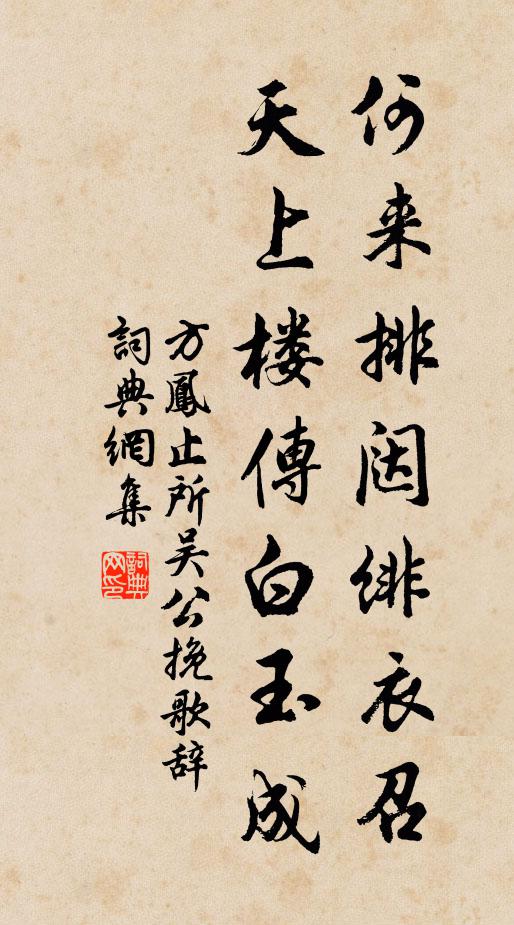 何来排闼绯衣召
天上楼傳白玉成
方鳳止所吴公挽歌辞
詞典網集
詞典网印